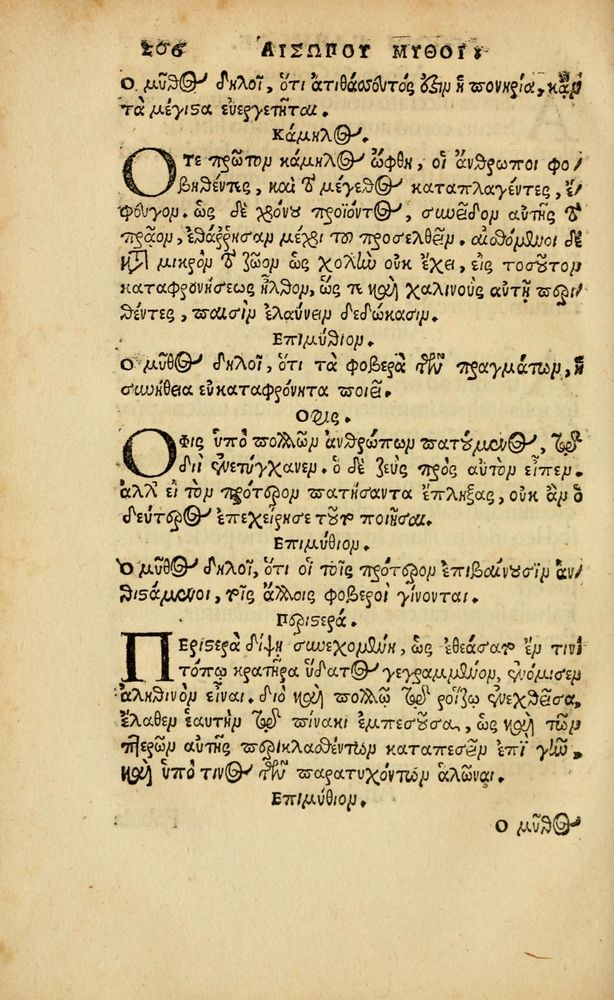 206 ΑΙΣΩΠΟΥ ΜΥΘΟΙ.
Ο μῦθος δηλοῖ, ὅτι ἀτιθάσσευτός ὅξιν ἡ πονηρία, κἂν
τὰ μέγιστα εὐεργετῆται.
Κάμηλος.
Οτε πρῶτον κάμηλος ὤφθη, οἱ ἄνθρωποι φο
βηθέντες, καὶ τὸ μέγεθος καταπλαγέντες, ἔ
φευγον. ὡς δὲ χρόνου προϊόντος, συνεῖδον αὐτῆς τὸ
πρᾶον, ἐθάρρησαν μέχρι τοῦ προσελθεῖν. αἰσθόμενοι δὲ
κατὰ μικρὸν τὸ ζῶον ὡς χολὴν οὐκ ἔχει, εἰς τοσοῦτον
καταφρονήσεως ἦλθον, ὥς τε καὶ χαλινοὺς αὐτῇ περι
θέντες, παισὶν ἐλαύνειν δεδώκασιν.
Επιμύθιον.
Ο μῦθος δηλοῖ, ὅτι τὰ φοβερὰ τῶν πραγμάτων, ἡ
συνήθεια εὐκαταφρόνητα ποιεῖ.
Οφις.
Οφις ὑπὸ πολλῶν ἀνθρώπων πατούμενος, τῷ
διῒ ἐνετύγχανεν. ὁ δὲ ζεὺς πρὸς αὐτὸν εἶπεν.
ἀλλ' εἰ τὸν πρότερον πατήσαντα ἔπληξας, οὐκ ἂν ὁ
δεύτερος ἐπεχείρησε τοῦτο ποιῆσαι.
Επιμύθιον.
Ο μῦθος δηλοῖ, ὅτι οἱ τοῖς πρότερον ἐπιβαίνουσιν ἀν
θιστάμενοι, τοῖς ἄλλοις φοβεροὶ γίνονται.
Περιστερά.
Περιστερὰ δίψη συνεχομένη, ὡς ἐθεάσατο ἔν τινι
τόπῳ κρατῆρα ὕδατος γεγραμμένον, ἐνόμισεν
ἀληθινὸν εἶναι. διὸ καὶ πολλῷ τῷ ῥοίζῳ ἐνεχθεῖσα,
ἔλαθεν ἑαυτὴν τῷ πίνακι ἐμπεσοῦσα, ὡς καὶ τῶν
πτερῶν αὐτῆς περικλασθέντων καταπεσεῖν ἐπὶ γῆν,
καὶ ὑπό τινος τῶν παρατυχόντων ἁλῶναι.
Επιμύθιον.
Ο μῦθος